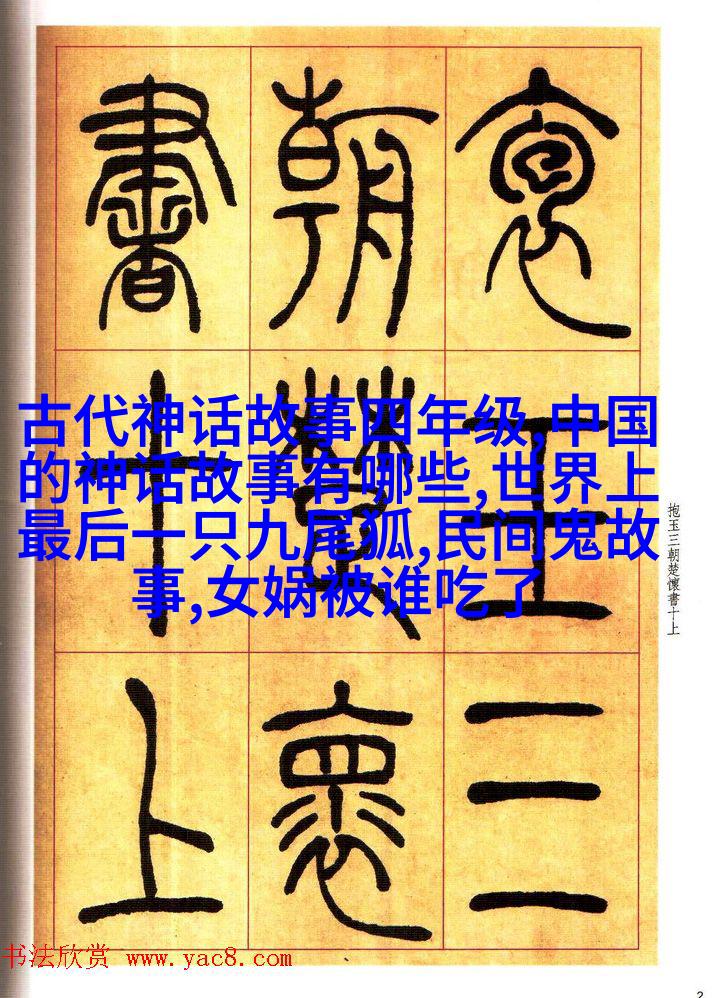 袌玉三
朝楚褱
書十上
古代神话故事四年级,中国
的神话故事有哪些,世界上
最后一只九尾狐,民间鬼故
事,女娲被谁吃了
抱玉三朝楚懷書十上
书法欣赏 www.yac8.com
2